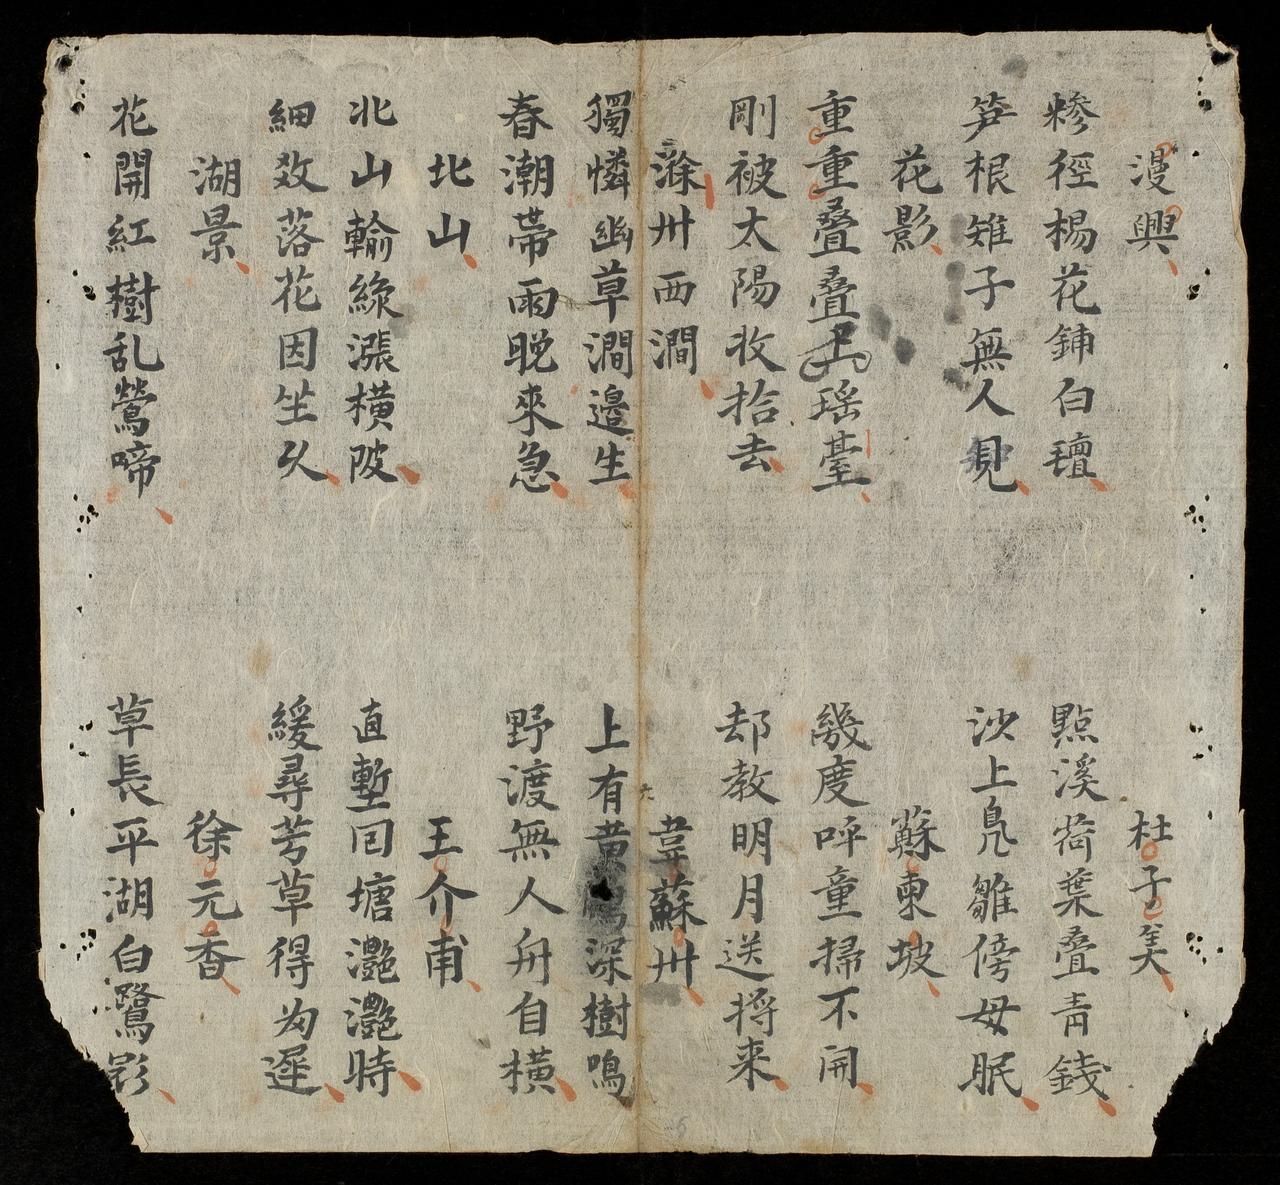 漫興
杜子美
糝徑楊花鋪白氊
點溪荷葉疊青錢
笋根雉子無人見
沙上鳬雛傍母眠
花影
蘇東坡
重重疊疊上瑶臺
幾度呼童掃不開
剛被太陽收拾去
却教明月送將来
滁州西澗
韋蘇州
獨憐幽草澗邉生
上有黄鸝深樹鳴
春潮帶雨晚來急
野渡無人舟自横
北山
王介甫
北山輸綠漲橫陂
直塹囘塘灔灔時
細数落花因坐久
緩尋芳草得㱕遲
湖景
徐元杳
花開紅樹乱鶯啼
草長平湖白鷺